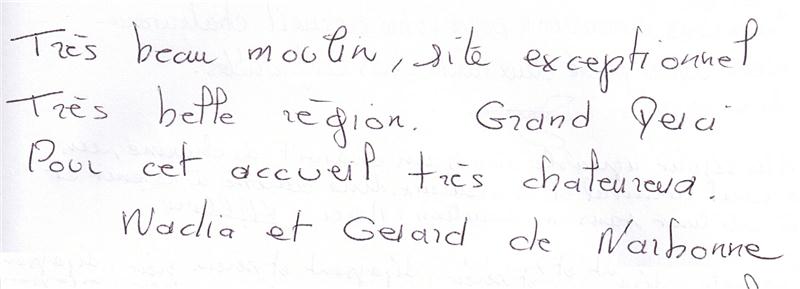 Très beau moulin, site exceptionnel
Très belle région. Grand Merci
Pour cet accueil très chaleureux.
Nadia et Gérard de Narbonne